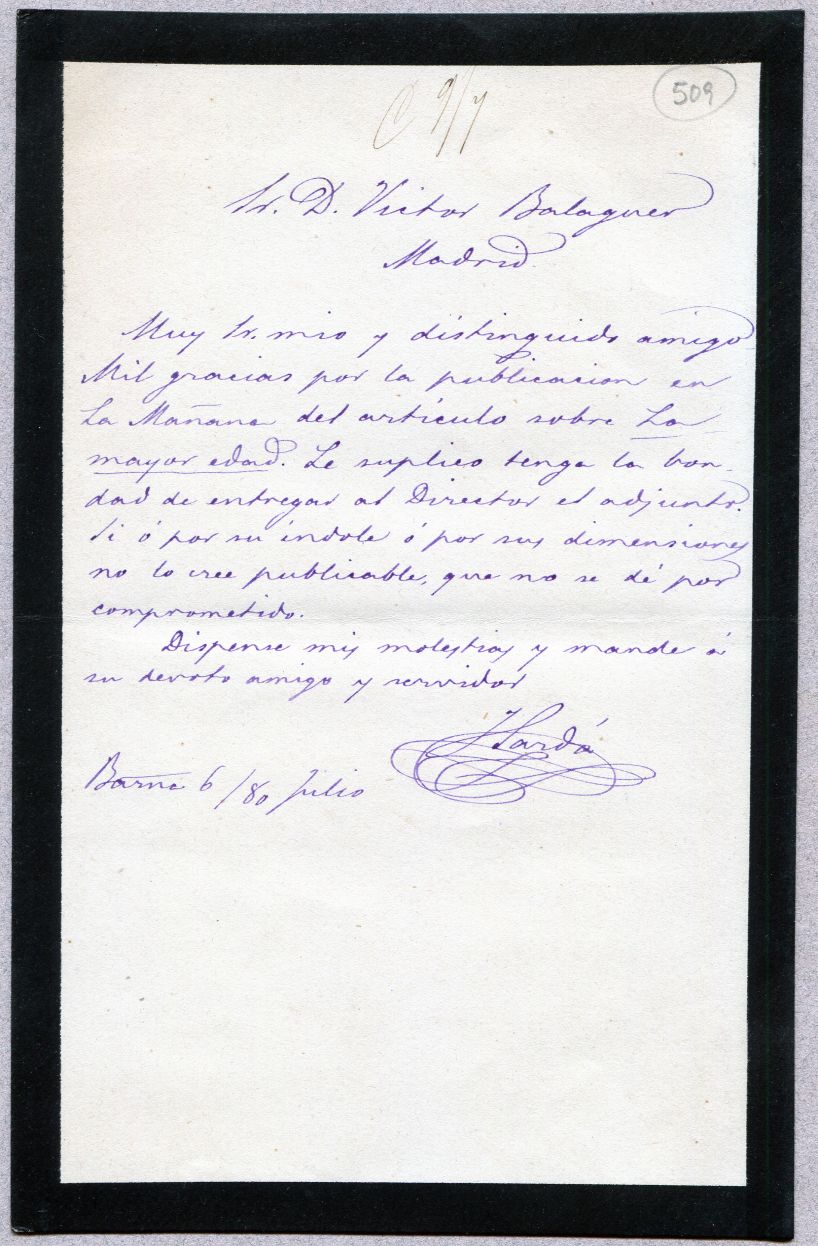 C 9/7
509
Sr. D. Victor Balaguer
Madrid.
Muy Sr. mio y distinguido amigo
Mil gracias por la publicacion en
La Mañana del artículo sobre La
mayor edad. Le suplico tenga la bon-
dad de entregar al Director el adjunto.
Si ó por su índole ó por sus dimensiones
no lo cree publicable, que no se dé por
comprometido.
Dispense mis molestias y mande á
su devoto amigo y servidor
J Sardá
Barna 6/80 Julio